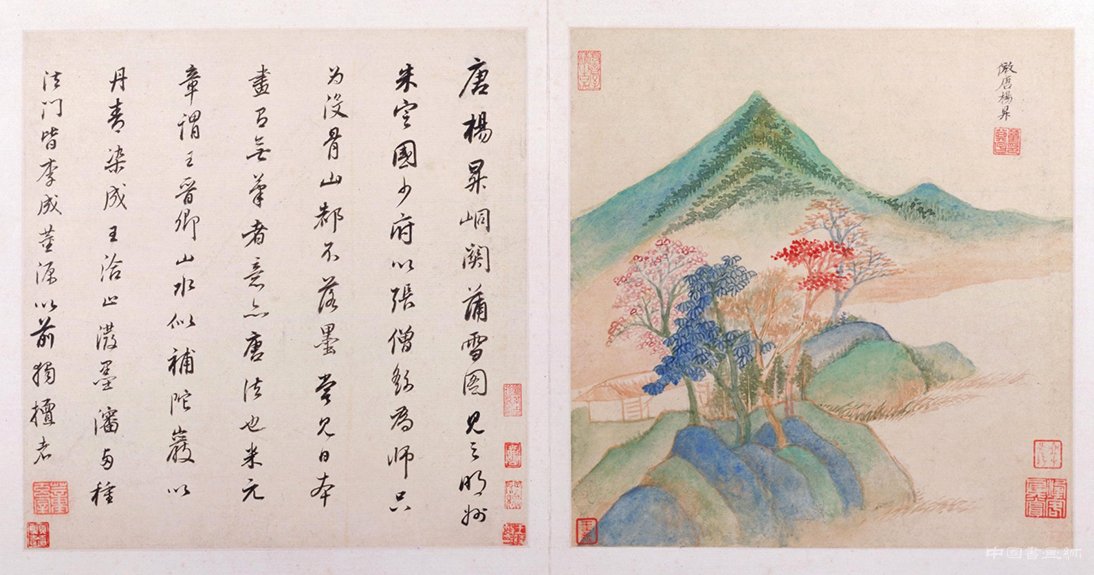 倣唐楊昇
唐楊昇峒関蒲雪図見之明州
朱定國少府以張僧繇為師只
为没骨山都不落墨嘗見日本
畫有無筆者意亦唐法也米元
章謂王晉卿山水似補陀巖以
丹青染成王洽止潑墨瀋種
法门皆李成董源以前獨擅者